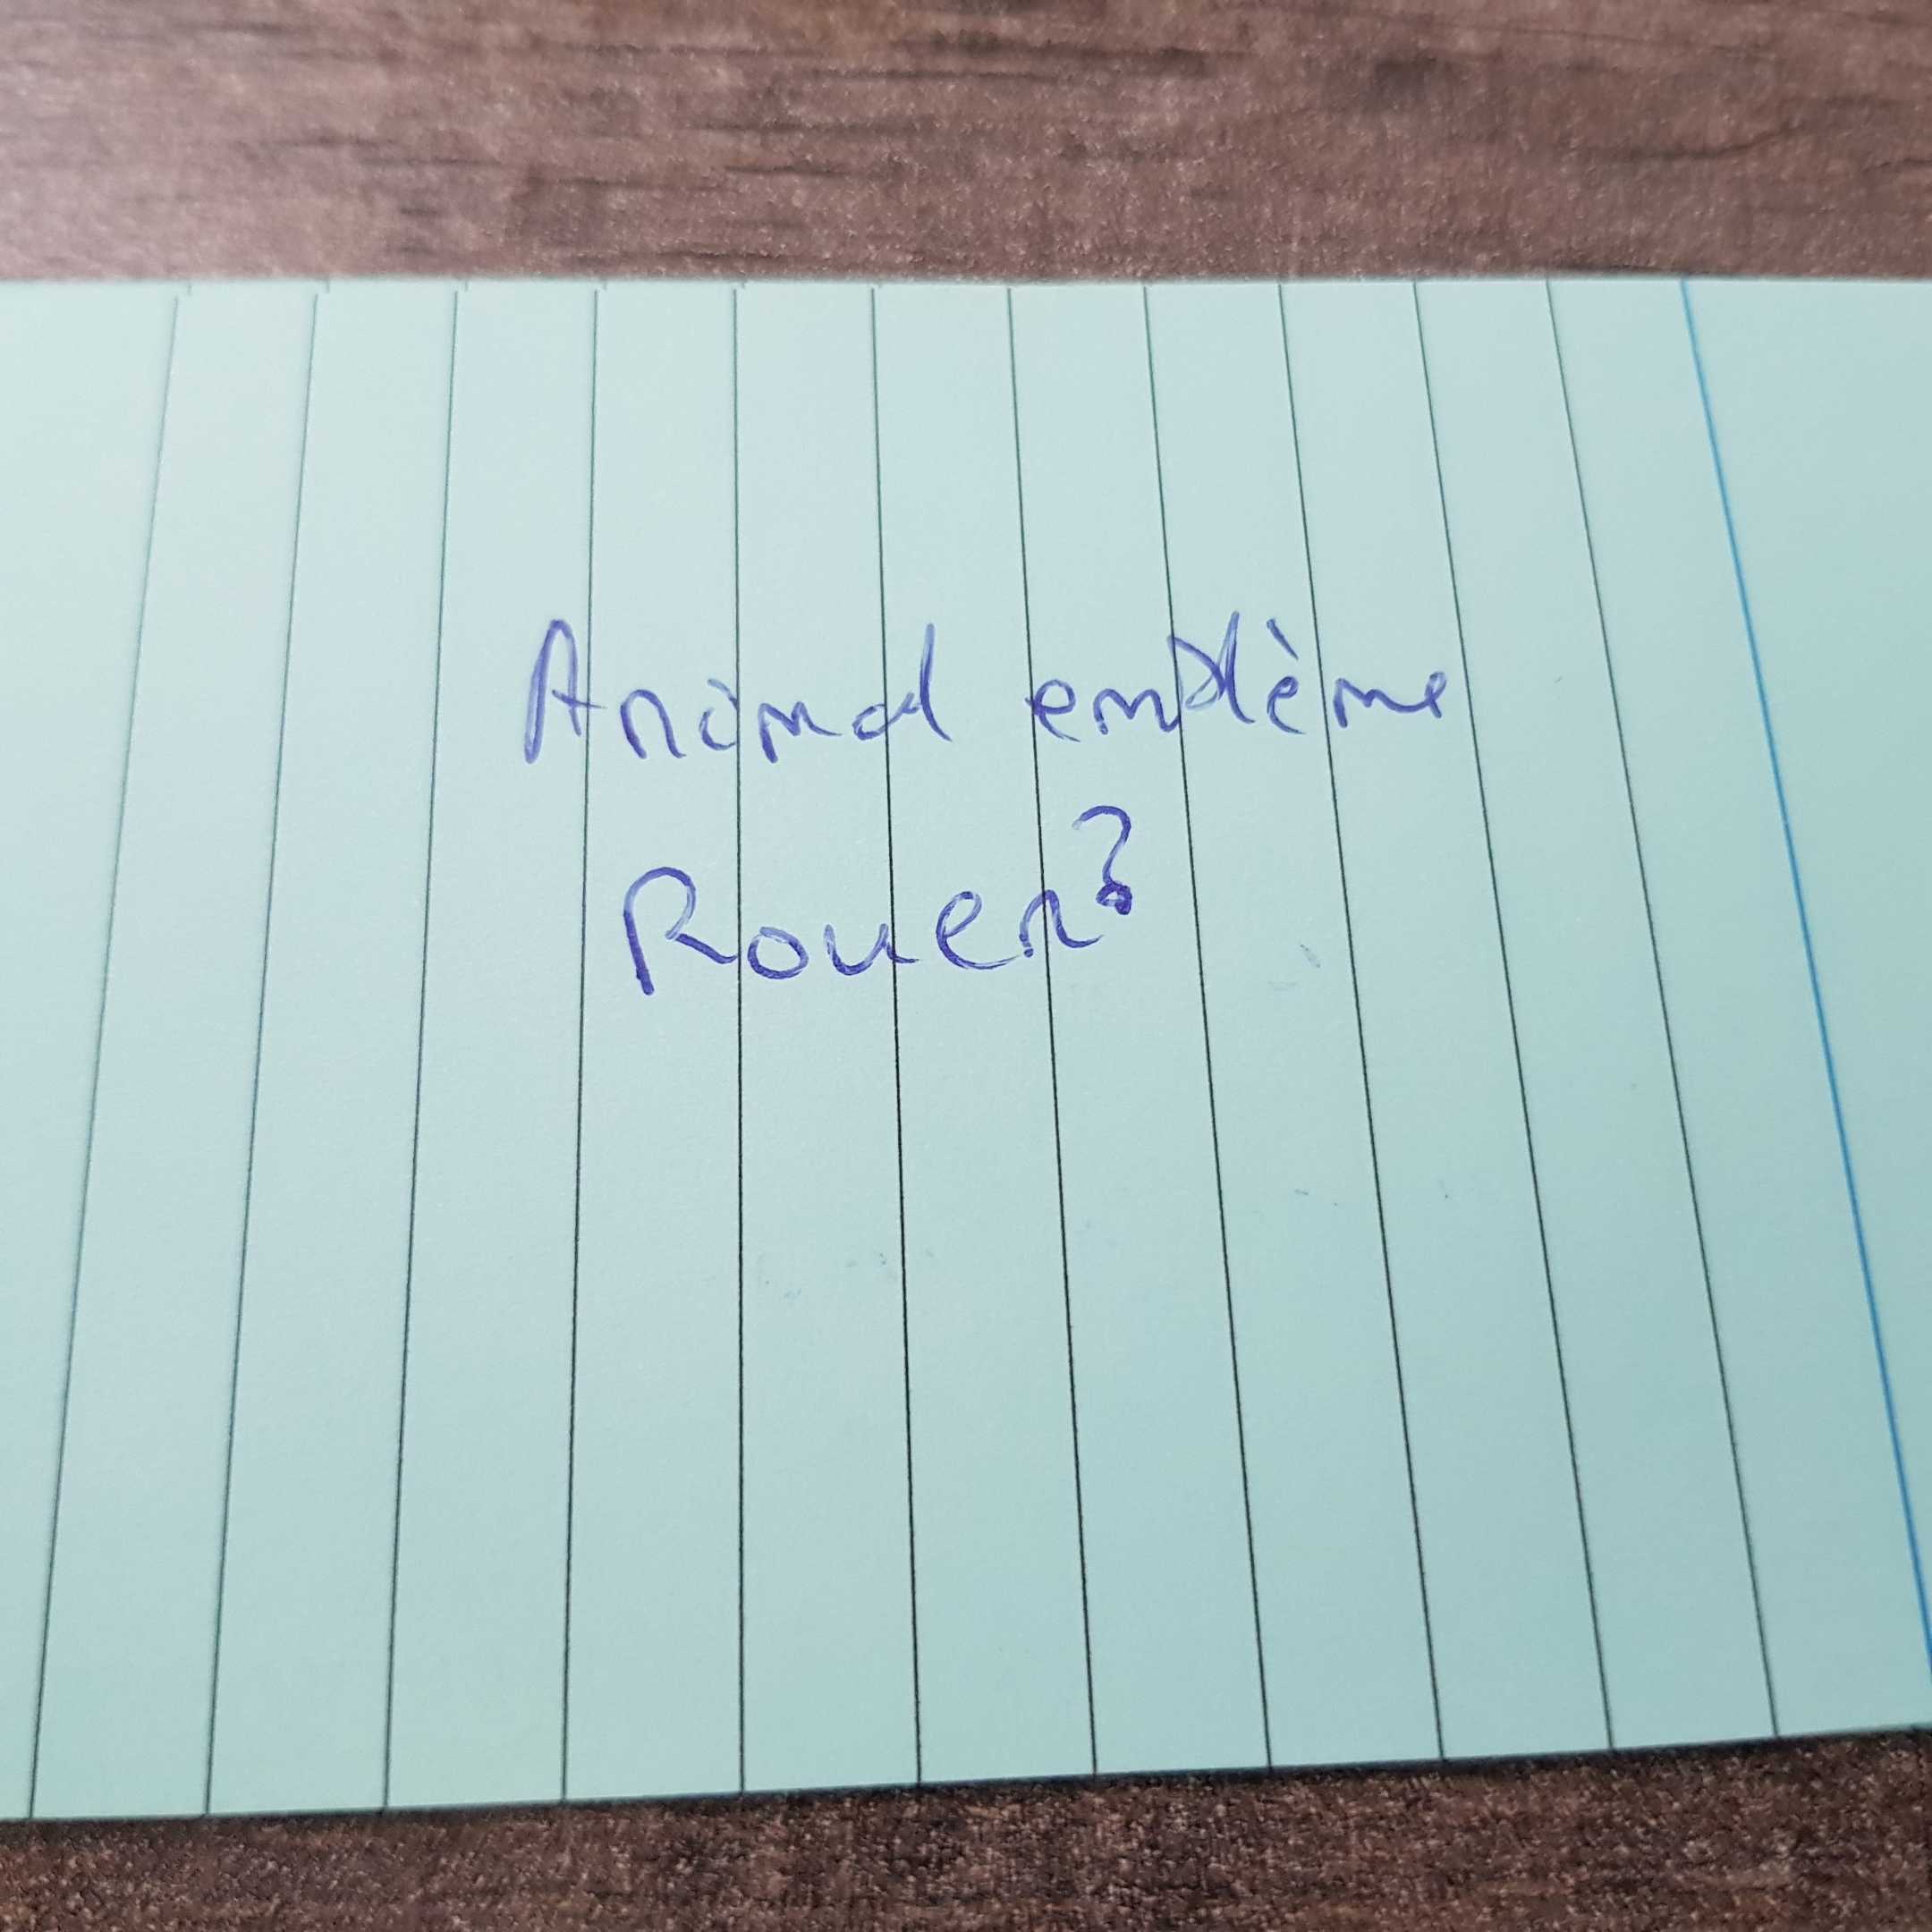 Animal emblème
Rouen?